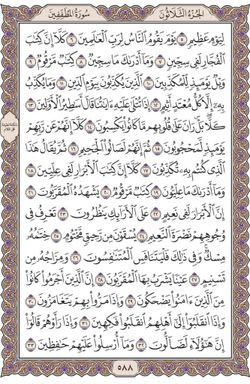 الجزء الثلاثون
سورة المطففين
لِيَوْمٍ عَظِيمٍ ٥ يَوْمَ يَقُومُ النَّاسُ لِرَبِّ الْعَالَمِينَ ٦ كَلَّا إِنَّ كِتَابَ
الْفُجَّارِ لَفِي سِجِّينٍ ٧ وَمَا أَدْرَاكَ مَا سِجِّينٌ ٨ كِتَابٌ مَرْقُومٌ ٩
وَيْلٌ يَوْمَئِذٍ لِلْمُكَذِّبِينَ ١٠ الَّذِينَ يُكَذِّبُونَ بِيَوْمِ الدِّينِ ١١ وَمَا يُكَذِّبُ
بِهِ إِلَّا كُلُّ مُعْتَدٍ أَثِيمٍ ١٢ إِذَا تُتْلَى عَلَيْهِ آيَاتُنَا قَالَ أَسَاطِيرُ الْأَوَّلِينَ ١٣
كَلَّا بَلْ رَانَ عَلَى قُلُوبِهِمْ مَا كَانُوا يَكْسِبُونَ ١٤ كَلَّا إِنَّهُمْ عَنْ رَبِّهِمْ
يَوْمَئِذٍ لَمَحْجُوبُونَ ١٥ ثُمَّ إِنَّهُمْ لَصَالُو الْجَحِيمِ ١٦ ثُمَّ يُقَالُ هَذَا
الَّذِي كُنْتُمْ بِهِ تُكَذِّبُونَ ١٧ كَلَّا إِنَّ كِتَابَ الْأَبْرَارِ لَفِي عِلِّيِّينَ ١٨
وَمَا أَدْرَاكَ مَا عِلِّيُّونَ ١٩ كِتَابٌ مَرْقُومٌ ٢٠ يَشْهَدُهُ الْمُقَرَّبُونَ ٢١
إِنَّ الْأَبْرَارَ لَفِي نَعِيمٍ ٢٢ عَلَى الْأَرَائِكِ يَنْظُرُونَ ٢٣ تَعْرِفُ فِي
وُجُوهِهِمْ نَضْرَةَ النَّعِيمِ ٢٤ يُسْقَوْنَ مِنْ رَحِيقٍ مَخْتُومٍ ٢٥ خِتَامُهُ
مِسْكٌ وَفِي ذَلِكَ فَلْيَتَنَافَسِ الْمُتَنَافِسُونَ ٢٦ وَمِزَاجُهُ مِنْ
تَسْنِيمٍ ٢٧ عَيْنًا يَشْرَبُ بِهَا الْمُقَرَّبُونَ ٢٨ إِنَّ الَّذِينَ أَجْرَمُوا كَانُوا
مِنَ الَّذِينَ آمَنُوا يَضْحَكُونَ ٢٩ وَإِذَا مَرُّوا بِهِمْ يَتَغَامَزُونَ ٣٠
وَإِذَا انْقَلَبُوا إِلَى أَهْلِهِمُ انْقَلَبُوا فَكِهِينَ ٣١ وَإِذَا رَأَوْهُمْ قَالُوا
إِنَّ هَؤُلَاءِ لَضَالُّونَ ٣٢ وَمَا أُرْسِلُوا عَلَيْهِمْ حَافِظِينَ ٣٣
٥٨٨